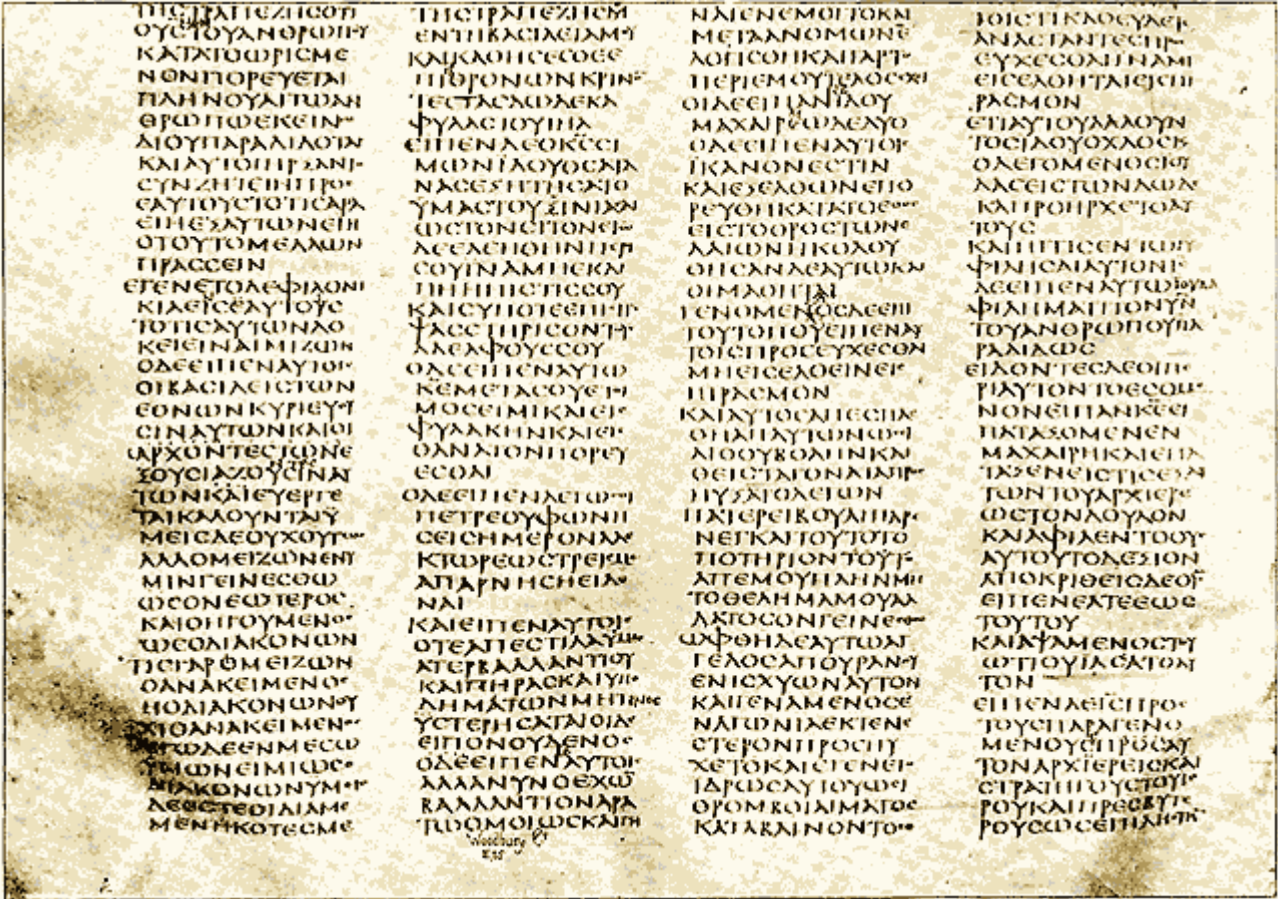 ΤΗCΤΡΑΠΕΖΗCΟΤΙ
ΟΥCΤΟΥΑΝΘΡΩΠΟΥ
ΚΑΤΑΤΟΩΡΙCΜΕ
ΝΟΝΠΟΡΕΥΕΤΑΙ
ΠΛΗΝΟΥΑΙΤΩΑΝ
ΘΡΩΠΩΕΚΕΙΝΩ
ΔΙΟΥΠΑΡΑΔΙΔΟΤΑΙ
ΚΑΙΑΥΤΟΙΗΡΞΑΝΤΟ
CΥΝΖΗΤΕΙΝΠΡΟC
ΕΑΥΤΟΥCΤΟΤΙCΑΡΑ
ΕΙΗΕΞΑΥΤΩΝΕΙΗ
ΟΤΟΥΤΟΜΕΛΛΩΝ
ΠΡΑCCΕΙΝ
ΕΓΕΝΕΤΟΔΕΦΙΛΟΝΙ
ΚΙΑΕΙCΕΑΥΤΟΥC
ΤΟΤΙCΑΥΤΩΝΔΟ
ΚΕΙΕΙΝΑΙΜΙΖΩΝ
ΟΔΕΕΙΠΕΝΑΥΤΟΙC
ΟΙΒΑCΙΛΕΙCΤΩΝ
ΕΘΝΩΝΚΥΡΙΕΥΟΥ
CΙΝΑΥΤΩΝΚΑΙΟΙ
ΑΡΧΟΝΤΕCΤΩΝΕ
ΞΟΥCΙΑΖΟΥCΙΝΑΥ
ΤΩΝΚΑΙΕΥΕΡΓΕ
ΤΑΙΚΑΛΟΥΝΤΑΙΫ
ΜΕΙCΔΕΟΥΧΟΥΤΩC
ΑΛΛΟΜΕΙΖΩΝΕΝΫ
ΜΙΝΓΕΙΝΕCΘΩ
ΩCΟΝΕΩΤΕΡΟC
ΚΑΙΟΗΓΟΥΜΕΝΟC
ΩCΟΔΙΑΚΟΝΩΝ
ΤΙCΓΑΡΟΜΕΙΖΩΝ
ΟΑΝΑΚΕΙΜΕΝΟC
ΗΟΔΙΑΚΟΝΩΝΟΥ
ΧΙΟΑΝΑΚΕΙΜΕΝΟC
ΕΓΩΔΕΕΝΜΕCΩ
ΫΜΩΝΕΙΜΙΩCΟ
ΔΙΑΚΟΝΩΝΥΜΙC
ΔΕΕCΤΕΟΙΔΙΑΜΕ
ΜΕΝΗΚΟΤΕCΜΕ
ΤΗCΤΡΑΠΕΖΗCΜΟΥ
ΕΝΤΗΒΑCΙΛΕΙΑΜΟΥ
ΚΑΙΚΑΘΗCΕCΘΕΕ
ΠΙΘΡΟΝΩΝΚΡΙΝΟ
ΤΕCΤΑCΔΩΔΕΚΑ
ΦΥΛΑCΤΟΥΙΗΛ
ΕΙΠΕΝΔΕΟΚCCΙ
ΜΩΝΪΔΟΥΟCΑΤΑ
ΝΑCΕΞΗΤΗCΑΤΟ
ΫΜΑCΤΟΥCΙΝΙΑCΑΙ
ΩCΤΟΝCΙΤΟΝΕΓΩ
ΔΕΕΔΕΗΘΗΝΠΕΡΙ
CΟΥΙΝΑΜΗΕΚΛΙ
ΠΗΗΠΙCΤΙCCΟΥ
ΚΑΙCΥΠΟΤΕΕΠΙCΤΡΕ
ΨΑCCΤΗΡΙCΟΝΤΟΥC
ΑΔΕΛΦΟΥCCΟΥ
ΟΔΕΕΙΠΕΝΑΥΤΩ
ΚΕΜΕΤΑCΟΥΕΤΟΙ
ΜΟCΕΙΜΙΚΑΙΕΙC
ΦΥΛΑΚΗΝΚΑΙΕΙC
ΘΑΝΑΤΟΝΠΟΡΕΥ
ΕCΘΑΙ
ΟΔΕΕΙΠΕΝΛΕΓΩCΟΙ
ΠΕΤΡΕΟΥΦΩΝΗ
CΕΙCΗΜΕΡΟΝΑΛΕ
ΚΤΩΡΕΩCΤΡΕΙCΜΕ
ΑΠΑΡΝΗCΗΕΙΔΕ
ΝΑΙ
ΚΑΙΕΙΠΕΝΑΥΤΟΙC
ΟΤΕΑΠΕCΤΙΛΑΥΜΑC
ΑΤΕΡΒΑΛΛΑΝΤΙΟΥ
ΚΑΙΠΗΡΑCΚΑΙΥΠΟ
ΔΗΜΑΤΩΝΜΗΤΙΝΟC
ΫCΤΕΡΗCΑΤΑΙΟΙΔΕ
ΕΙΠΟΝΟΥΔΕΝΟC
ΟΔΕΕΙΠΕΝΑΥΤΟΙC
ΑΛΛΑΝΥΝΟΕΧΩ
ΒΑΛΛΑΝΤΙΟΝΑΡΑ
ΤΩΟΜΟΙΩCΚΑΙΠΗ
ΜΕΤΑΑΝΟΜΩΝΕ
ΛΟΓΙCΘΗΚΑΙΓΑΡΤΟ
ΠΕΡΙΕΜΟΥΤΕΛΟCΕΧΙ
ΟΙΔΕΕΙΠΑΝΪΔΟΥ
ΜΑΧΑΙΡΕΩΔΕΔΥΟ
ΟΔΕΕΙΠΕΝΑΥΤΟΙC
ΪΚΑΝΟΝΕCΤΙΝ
ΚΑΙΕΞΕΛΘΩΝΕΠΟ
ΡΕΥΘΗΚΑΤΑΤΟΕΘΟC
ΕΙCΤΟΟΡΟCΤΩΝΕ
ΛΑΙΩΝΗΚΟΛΟΥ
ΘΗCΑΝΔΕΑΥΤΩΚΑΙ
ΟΙΜΑΘΗΤΑΙ
ΓΕΝΟΜΕΝΟCΔΕΕΠΙ
ΤΟΥΤΟΠΟΥΕΙΠΕΝΑΥ
ΤΟΙCΠΡΟCΕΥΧΕCΘΑΙ
ΜΗΕΙCΕΛΘΕΙΝΕΙC
ΠΙΡΑCΜΟΝ
ΚΑΙΑΥΤΟCΑΠΕCΠΑC
ΘΗΑΠΑΥΤΩΝΩCΙ
ΛΙΘΟΥΒΟΛΗΝΚΑΙ
ΘΕΙCΤΑΓΟΝΑΤΑΠΡΟC
ΗΥΞΑΤΟΛΕΓΩΝ
ΠΑΤΕΡΕΙΒΟΥΛΕΙΠΑΡΕ
ΝΕΓΚΑΙΤΟΥΤΟΤΟ
ΠΟΤΗΡΙΟΝΤΟΥΤ
ΑΠΕΜΟΥΠΛΗΝΜΗ
ΤΟΘΕΛΗΜΑΜΟΥΑΛ
ΛΑΤΟCΟΝΓΕΙΝΕCΘΩ
ΩΦΘΗΔΕΑΥΤΩΑΓ
ΓΕΛΟCΑΠΟΥΡΑΝΟΥ
ΕΝΙCΧΥΩΝΑΥΤΟΝ
ΚΑΙΓΕΝΑΜΕΝΟCΕ
ΝΑΓΩΝΙΑΕΚΤΕΝΕ
CΤΕΡΟΝΠΡΟCΗΥ
ΧΕΤΟΚΑΙΕΓΕΝΕΤΟ
ΪΔΡΩCΑΥΤΟΥΩCΕΙ
ΘΡΟΜΒΟΙΑΙΜΑΤΟC
ΚΑΤΑΒΑΙΝΟΝΤΟC
ΑΝΑCΤΑΝΤΕCΠΡΟC
ΕΥΧΕCΘΑΙΙΝΑΜΗ
ΕΙCΕΛΘΗΤΑΙΕΙCΠΙ
ΡΑCΜΟΝ
ΕΤΙΑΥΤΟΥΛΑΛΟΥΝ
ΤΟCΪΔΟΥΟΧΛΟCΚ
ΟΛΕΓΟΜΕΝΟCΙΟΥ
ΔΑCΕΙCΤΩΝΔΩΔΕ
ΚΑΙΠΡΟΗΡΧΕΤΟΑΥ
ΤΟΥC
ΚΑΙΗΓΓΙCΕΝΤΩΙΥ
ΦΙΛΗCΑΙΑΥΤΟΝΙC
ΔΕΕΙΠΕΝΑΥΤΩΙΟΥΔΑ
ΦΙΛΗΜΑΤΙΤΟΝΥΝ
ΤΟΥΑΝΘΡΩΠΟΥΠΑ
ΡΑΔΙΔΩC
ΕΙΔΟΝΤΕCΔΕΟΙΠΕ
ΡΙΑΥΤΟΝΤΟΕCΟΜΕ
ΝΟΝΕΙΠΑΝΚΕΕΙ
ΠΑΤΑΞΟΜΕΝΕΝ
ΜΑΧΑΙΡΗΚΑΙΕΠΑ
ΤΑΞΕΝΕΙCΤΙCΕΞΑΥ
ΤΩΝΤΟΥΑΡΧΙΕΡΕ
ΩCΤΟΝΔΟΥΛΟΝ
ΚΑΙΑΦΙΛΕΝΤΟΟΥC
ΑΥΤΟΥΤΟΔΕΞΙΟΝ
ΑΠΟΚΡΙΘΕΙCΔΕΟΙC
ΕΙΠΕΝΕΑΤΕΕΩC
ΤΟΥΤΟΥ
ΚΑΙΑΨΑΜΕΝΟCΤΟΥ
ΩΤΙΟΥΙΑCΑΤΟΑΥ
ΤΟΝ
ΕΙΠΕΝΔΕΙCΠΡΟC
ΤΟΥCΠΑΡΑΓΕΝΟ
ΜΕΝΟΥCΠΡΟCΑΥ
ΤΟΝΑΡΧΙΕΡΕΙCΚΑΙ
CΤΡΑΤΗΓΟΥCΤΟΥΙΕ
ΡΟΥΚΑΙΠΡΕCΒΥΤΕ
ΡΟΥCΩCΕΠΙΛΗCΤΗ